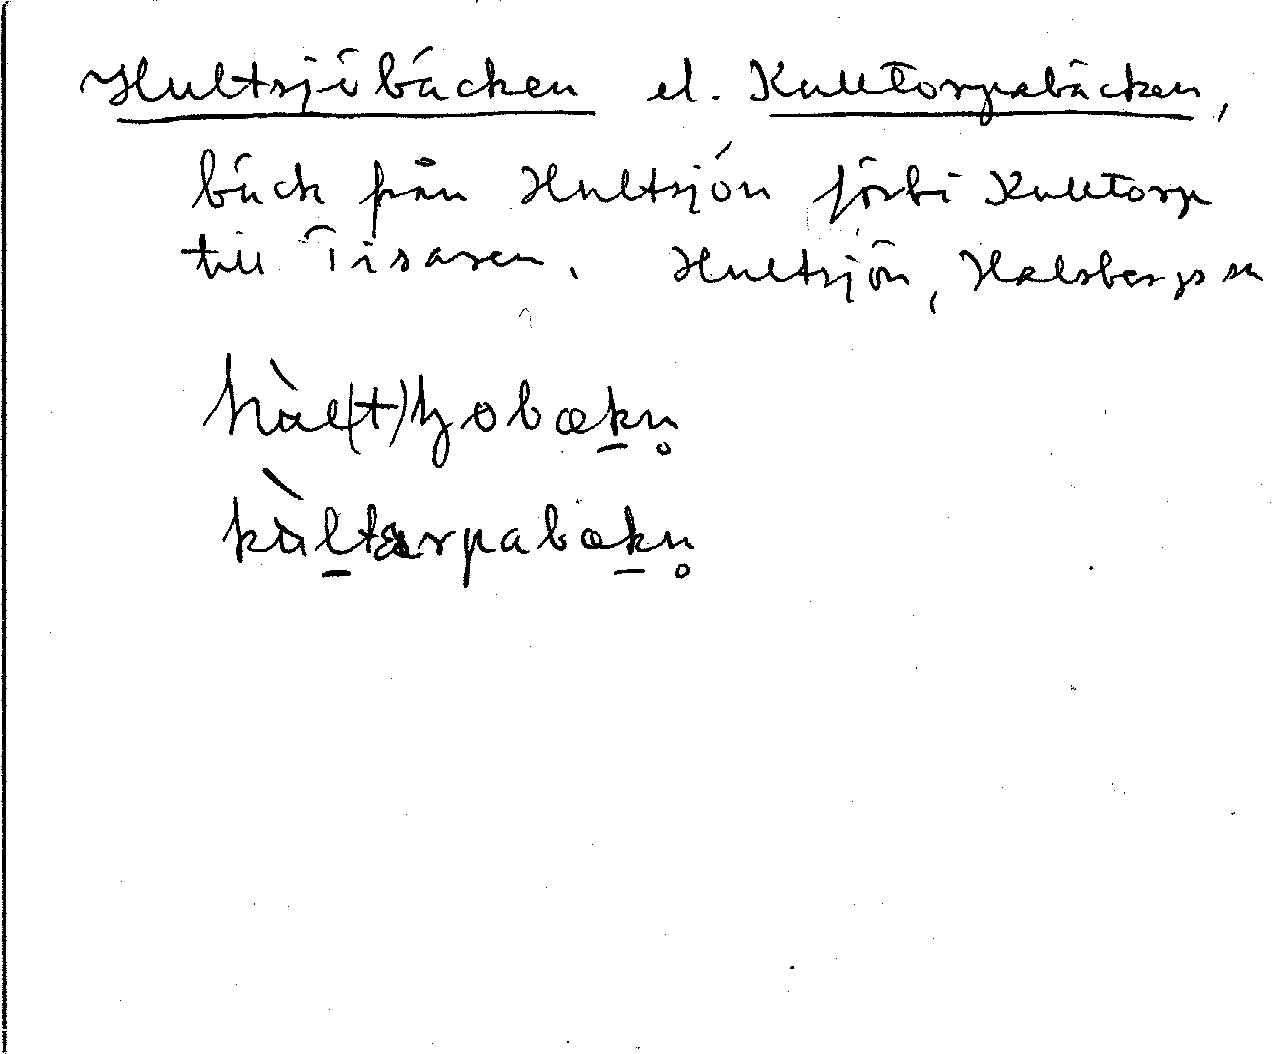 Hultsjöbäcken el. Kulltorpabäcken,
bäck från Hultsjön förbi Kulltorp
till Tisaren. Hultsjön, Halsbergs sn